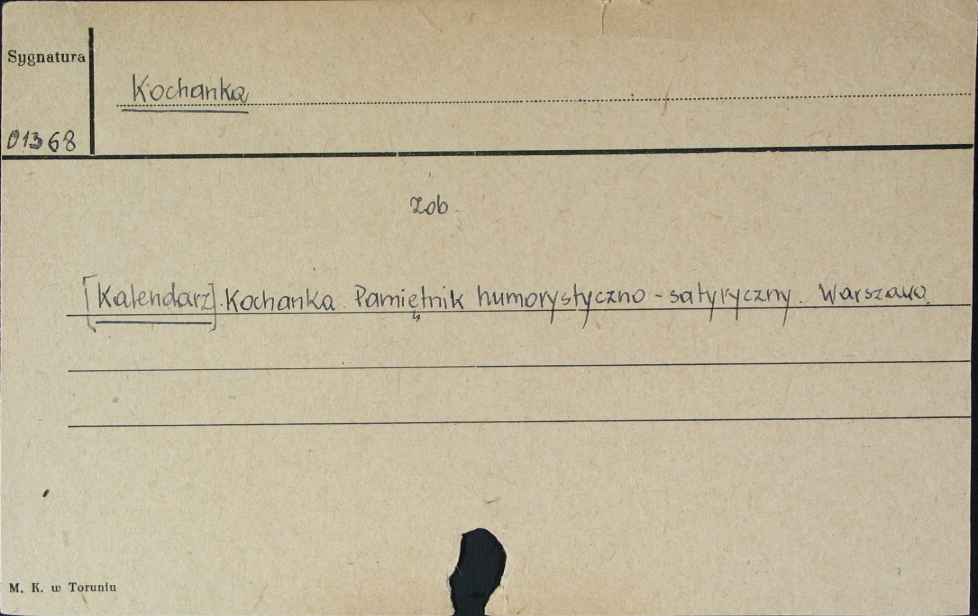 Sygnatura
Kochanka
01368
Zob.
[Kalendarz]. Kochanka. Pamiętnik humorystyczno-satyryczny. Warszawa.
M. K. w Toruniu